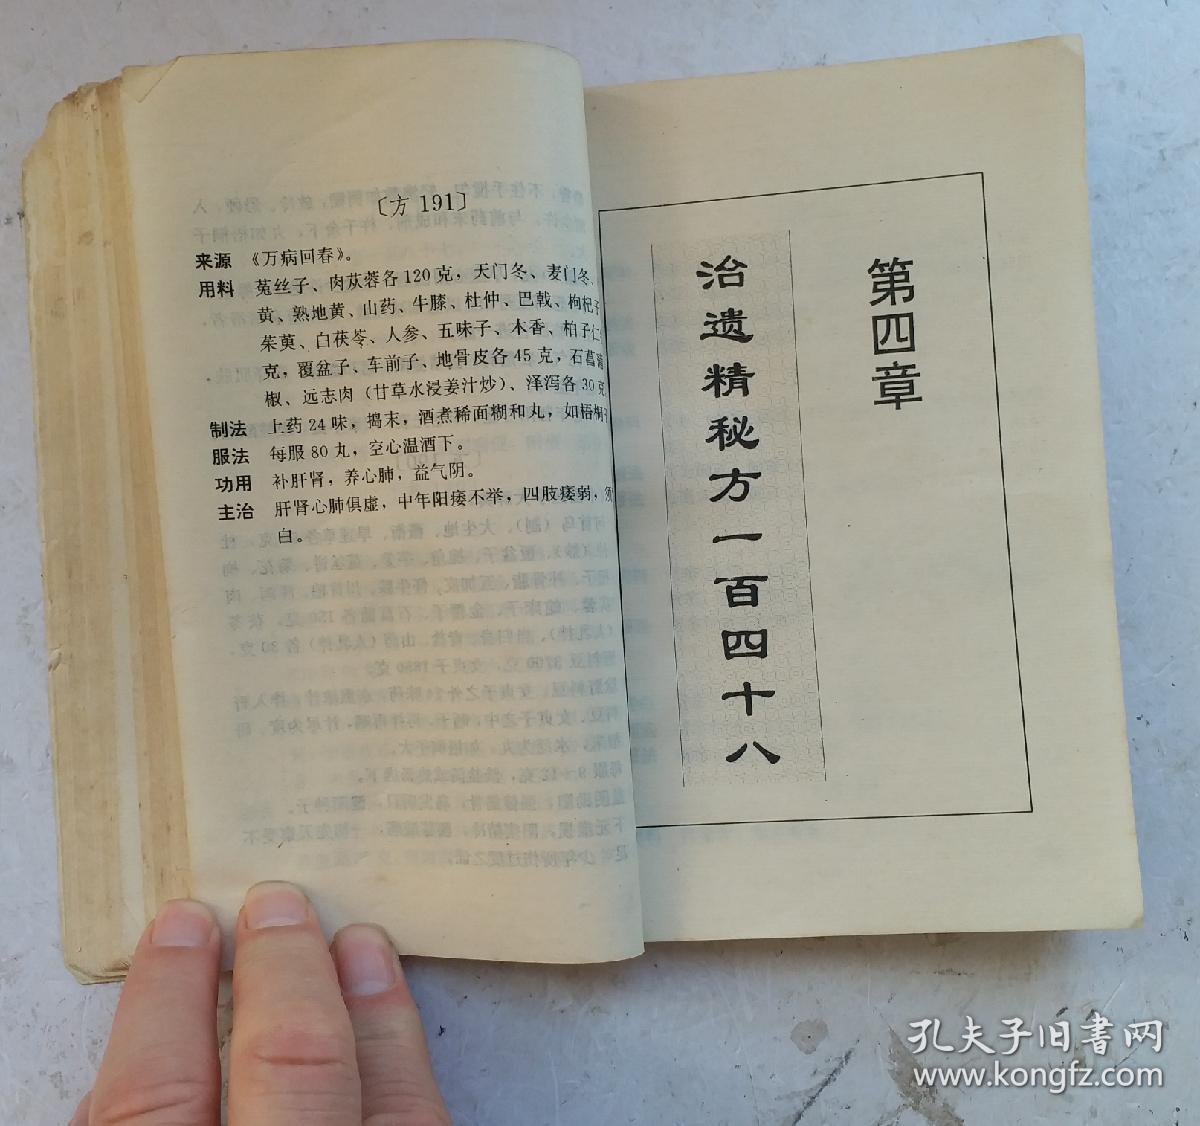 〔方 191〕
来源 《万病回春》。
用料 菟丝子、肉苁蓉各 120 克，天门冬、麦门冬、
黄、熟地黄、山药、牛膝、杜仲、巴戟、枸杞子
茱萸、白茯苓、人参、五味子、木香、柏子仁
克，覆盆子、车前子、地骨皮各 45 克，石菖蒲
椒、远志肉（甘草水浸姜汁炒）、泽泻各 30 克
制法 上药 24 味，捣末，酒煮稀面糊和丸，如梧桐子
服法 每服 80 丸，空心温酒下。
功用 补肝肾，养心肺，益气阴。
主治 肝肾心肺俱虚，中年阳痿不举，四肢痿弱，须
白。
第四章
治遗精秘方一百四十八
孔夫子旧书网
www.kongfz.com